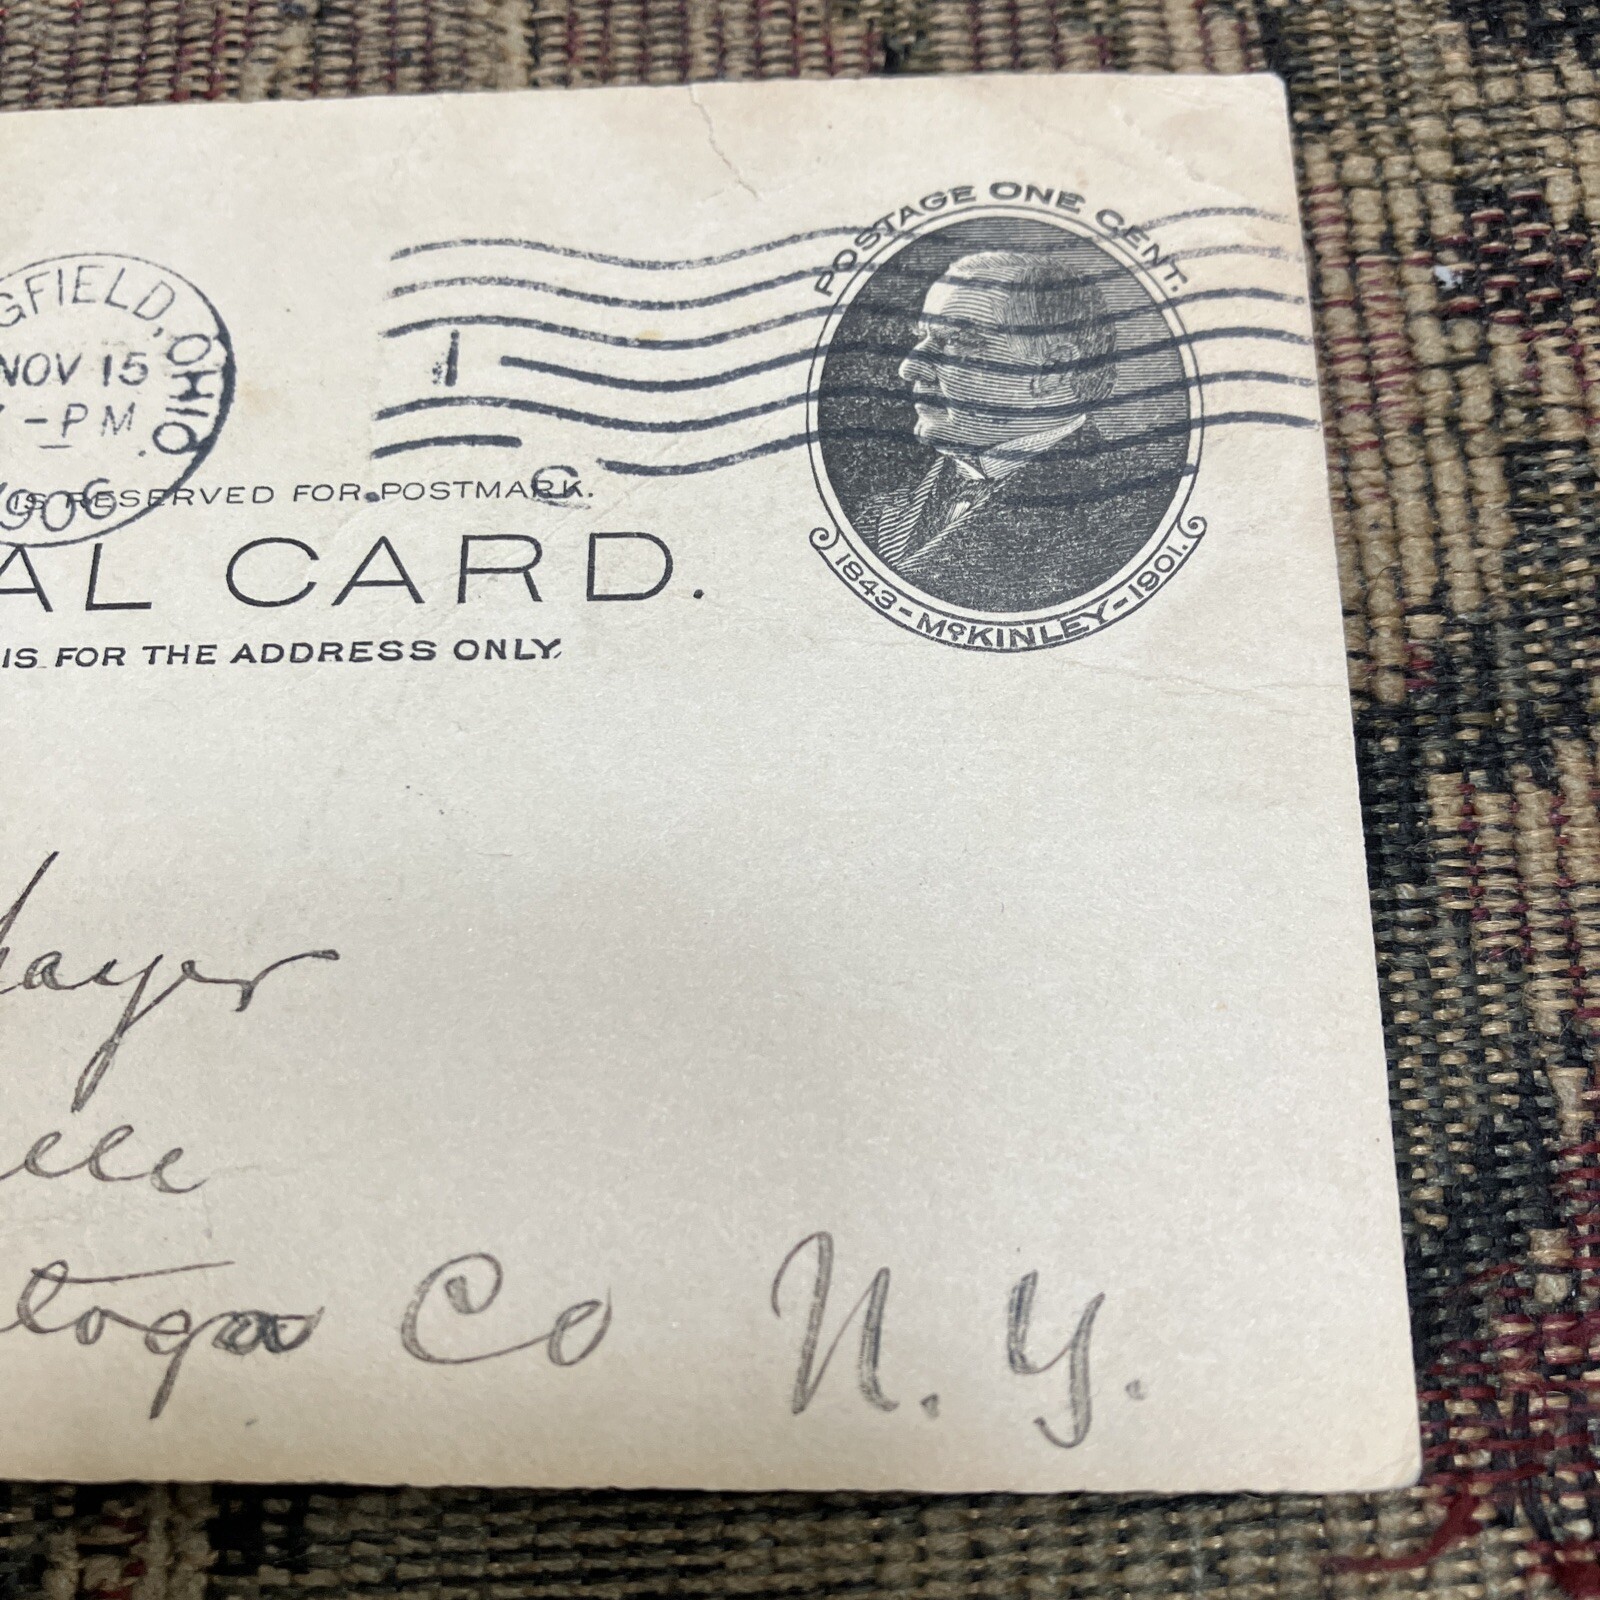 POSTAGE ONE CENT.
GFIELD, OHIO.
NOV 15
7-PM
1906
1
C
IS RESERVED FOR POSTMARK.
AL CARD.
IS FOR THE ADDRESS ONLY.
1843-McKINLEY-1901.
hayer
lle
toga Co N.Y.